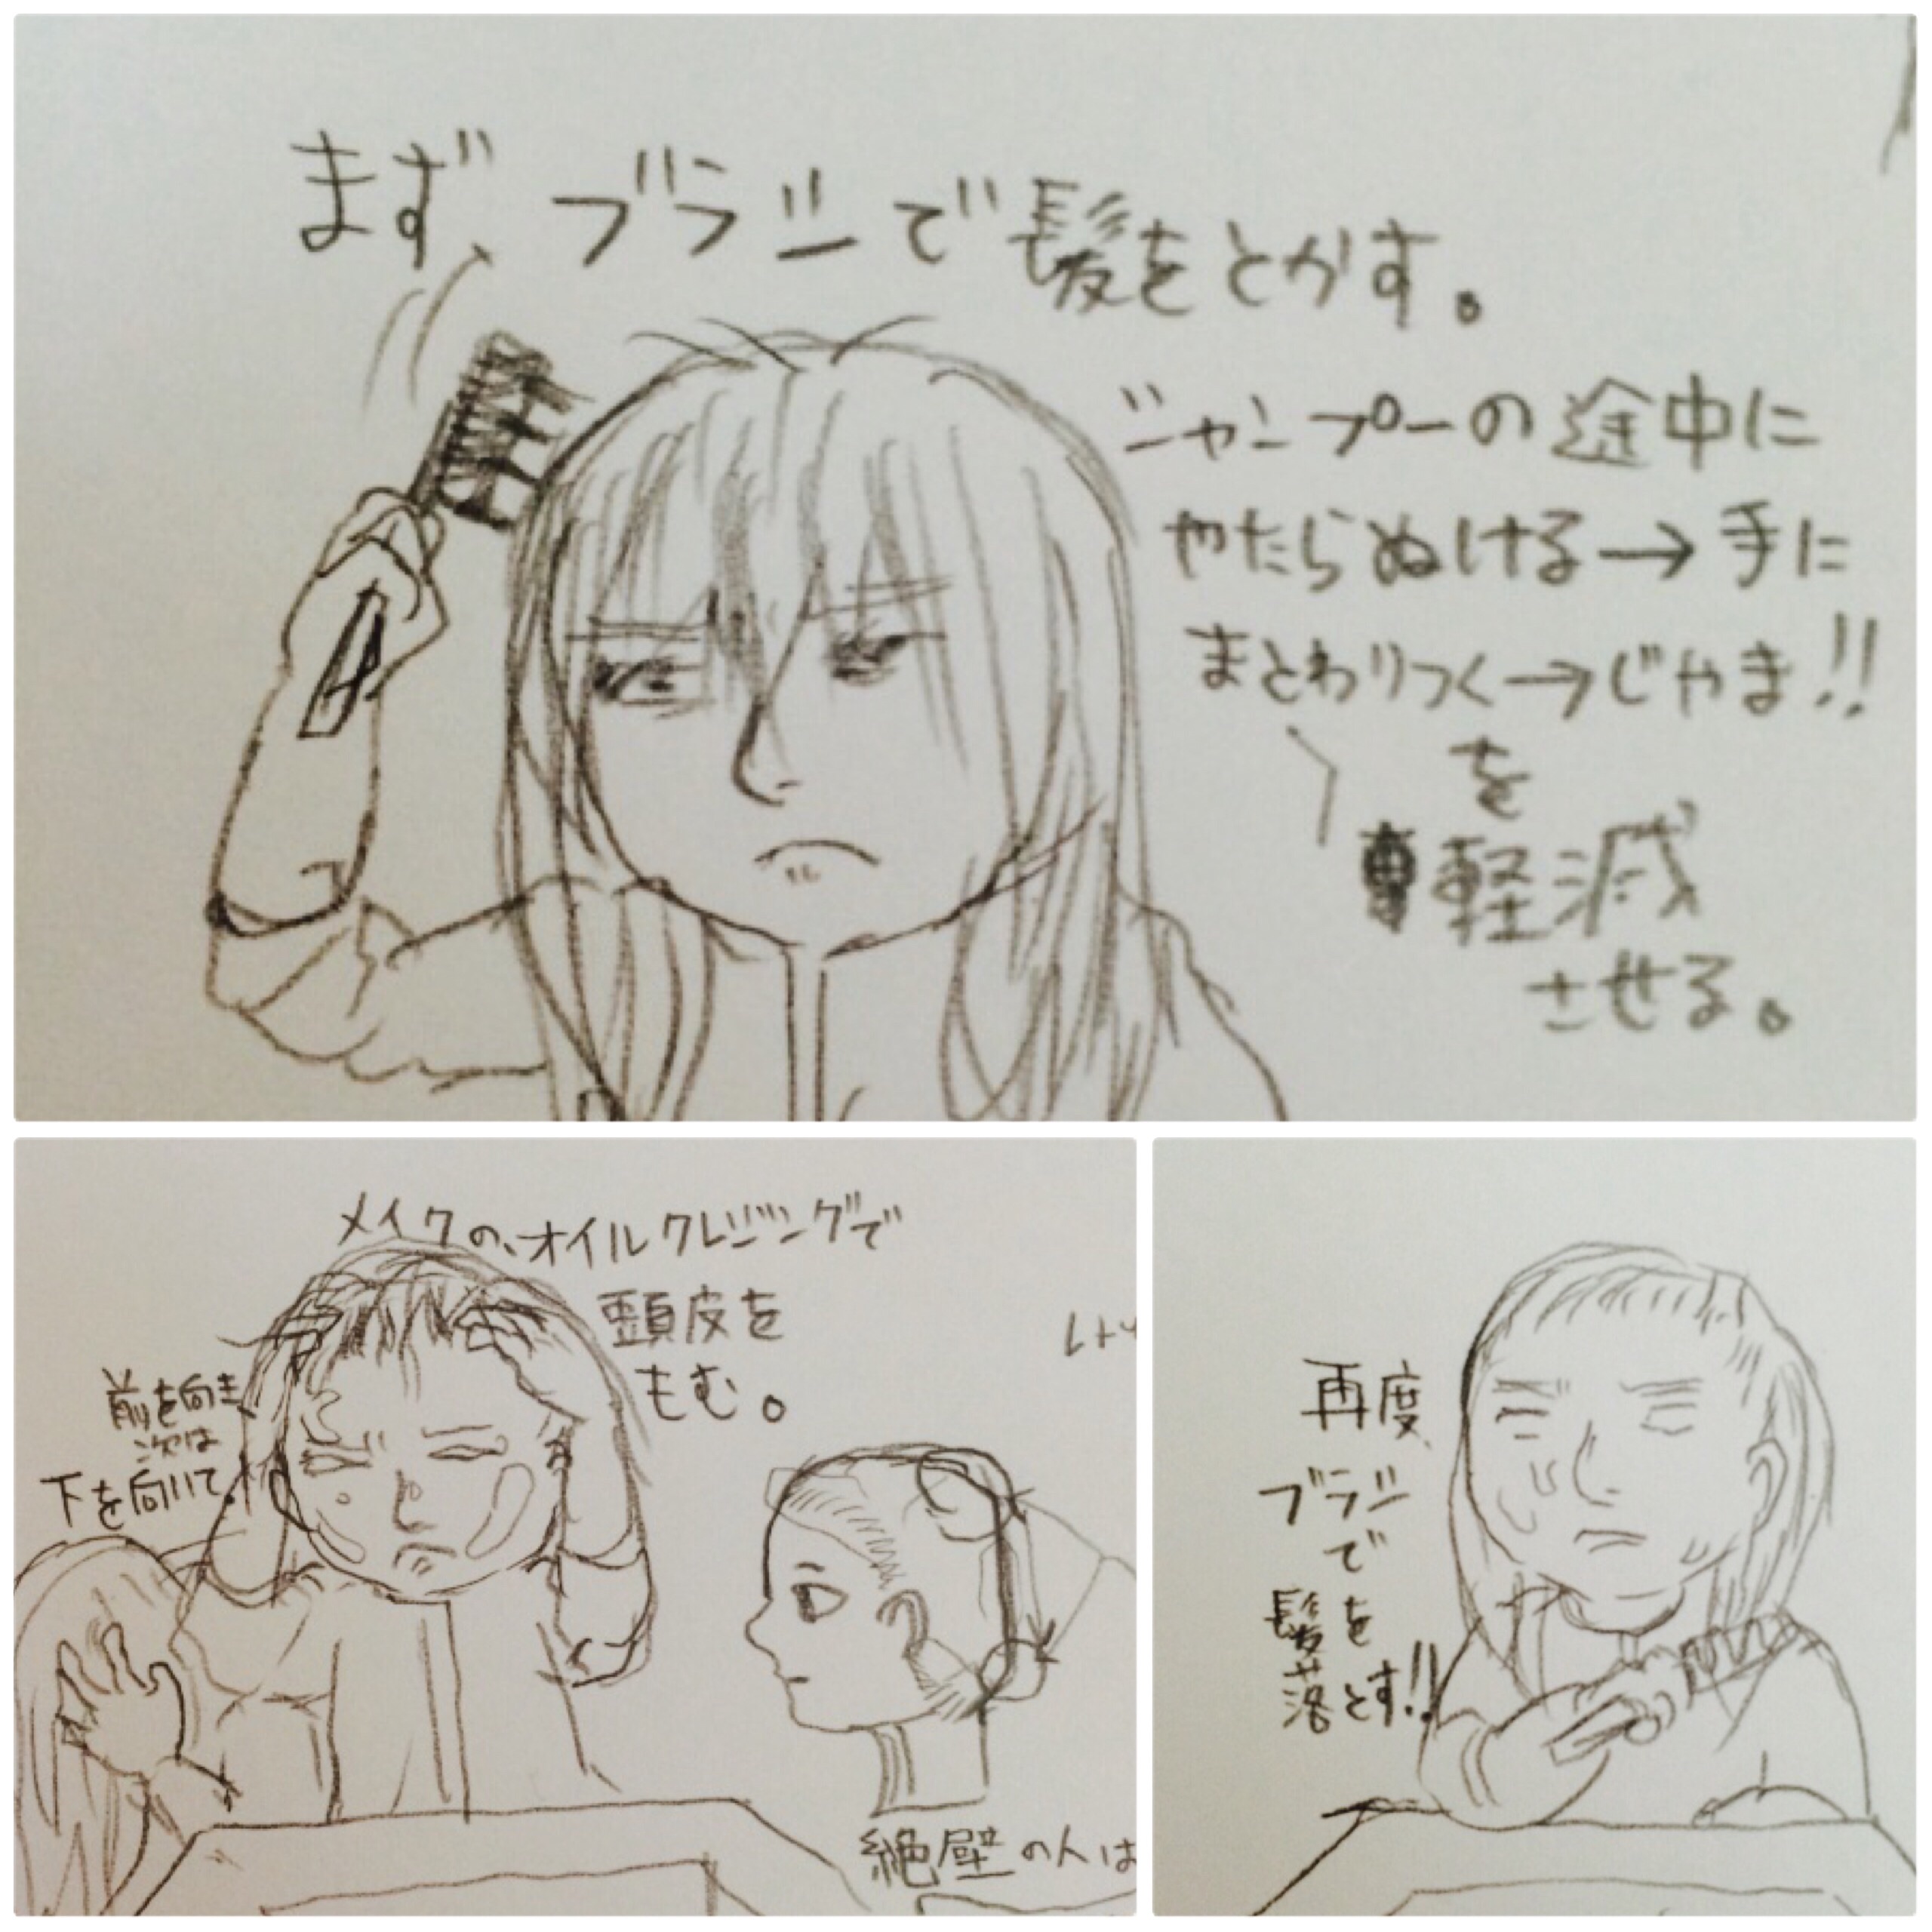 まず、ブラシで髪をとかす。
シャンプーの途中に
やたらぬける→手に
まとわりつく→じゃま!!
を
軽減
させる。
メイクの、オイルクレンジングで
頭皮を
もむ。
前を向き
次は
下を向いて。
絶壁の人は
再度、
ブラシ
で
髪を
落とす!!